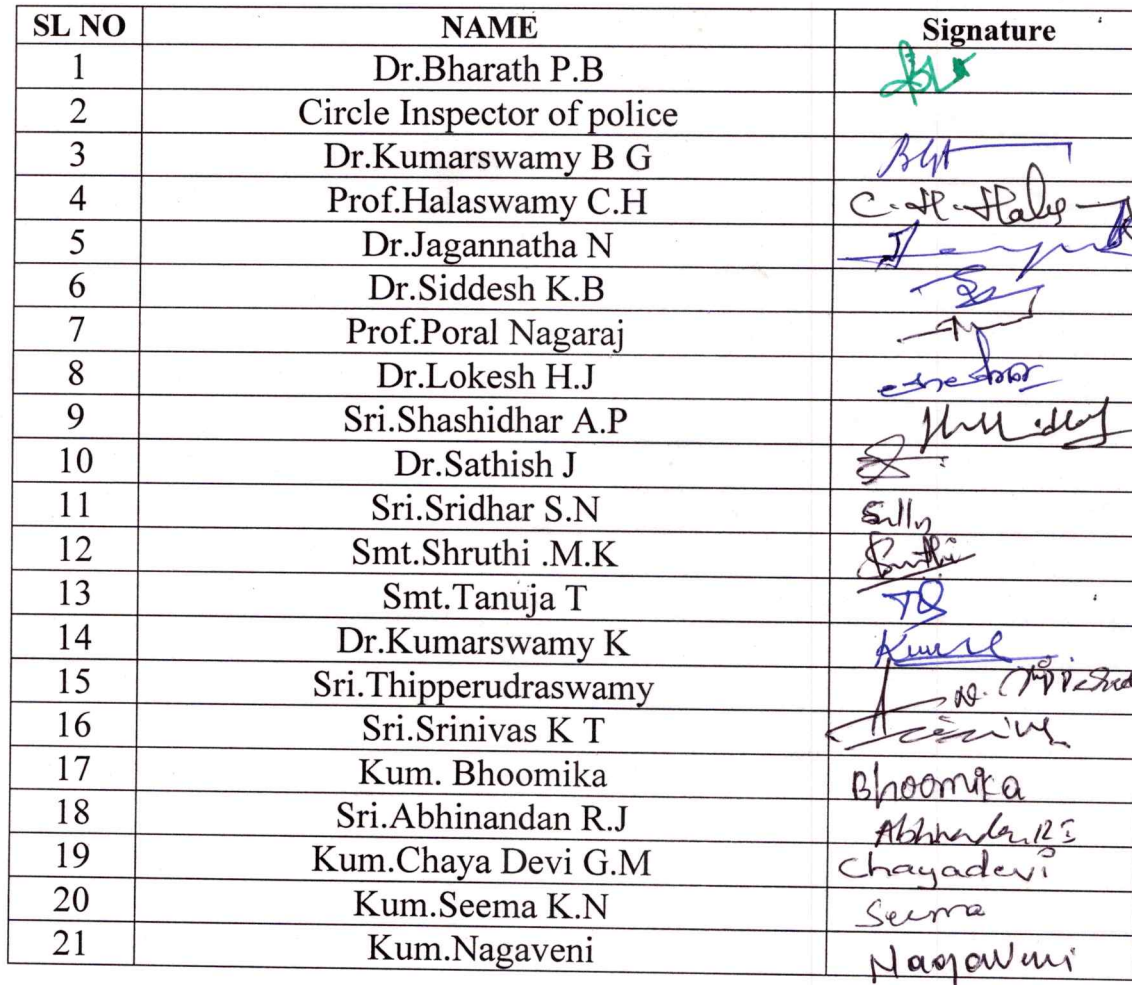 SL NO NAME Signature
1 Dr.Bharath P.B
2 Circle Inspector of police
3 Dr.Kumarswamy B G
4 Prof.Halaswamy C.H C.H.Hals
5 Dr.Jagannatha N
6 Dr.Siddesh K.B
7 Prof.Poral Nagaraj
8 Dr.Lokesh H.J
9 Sri.Shashidhar A.P
10 Dr.Sathish J
11 Sri.Sridhar S.N
12 Smt.Shruthi .M.K
13 Smt.Tanuja T
14 Dr.Kumarswamy K
15 Sri.Thipperudraswamy
16 Sri.Srinivas K T
17 Kum. Bhoomika Bhoomika
18 Sri.Abhinandan R.J
19 Kum.Chaya Devi G.M Chayadevi
20 Kum.Seema K.N Seema
21 Kum.Nagaveni Nagaveni